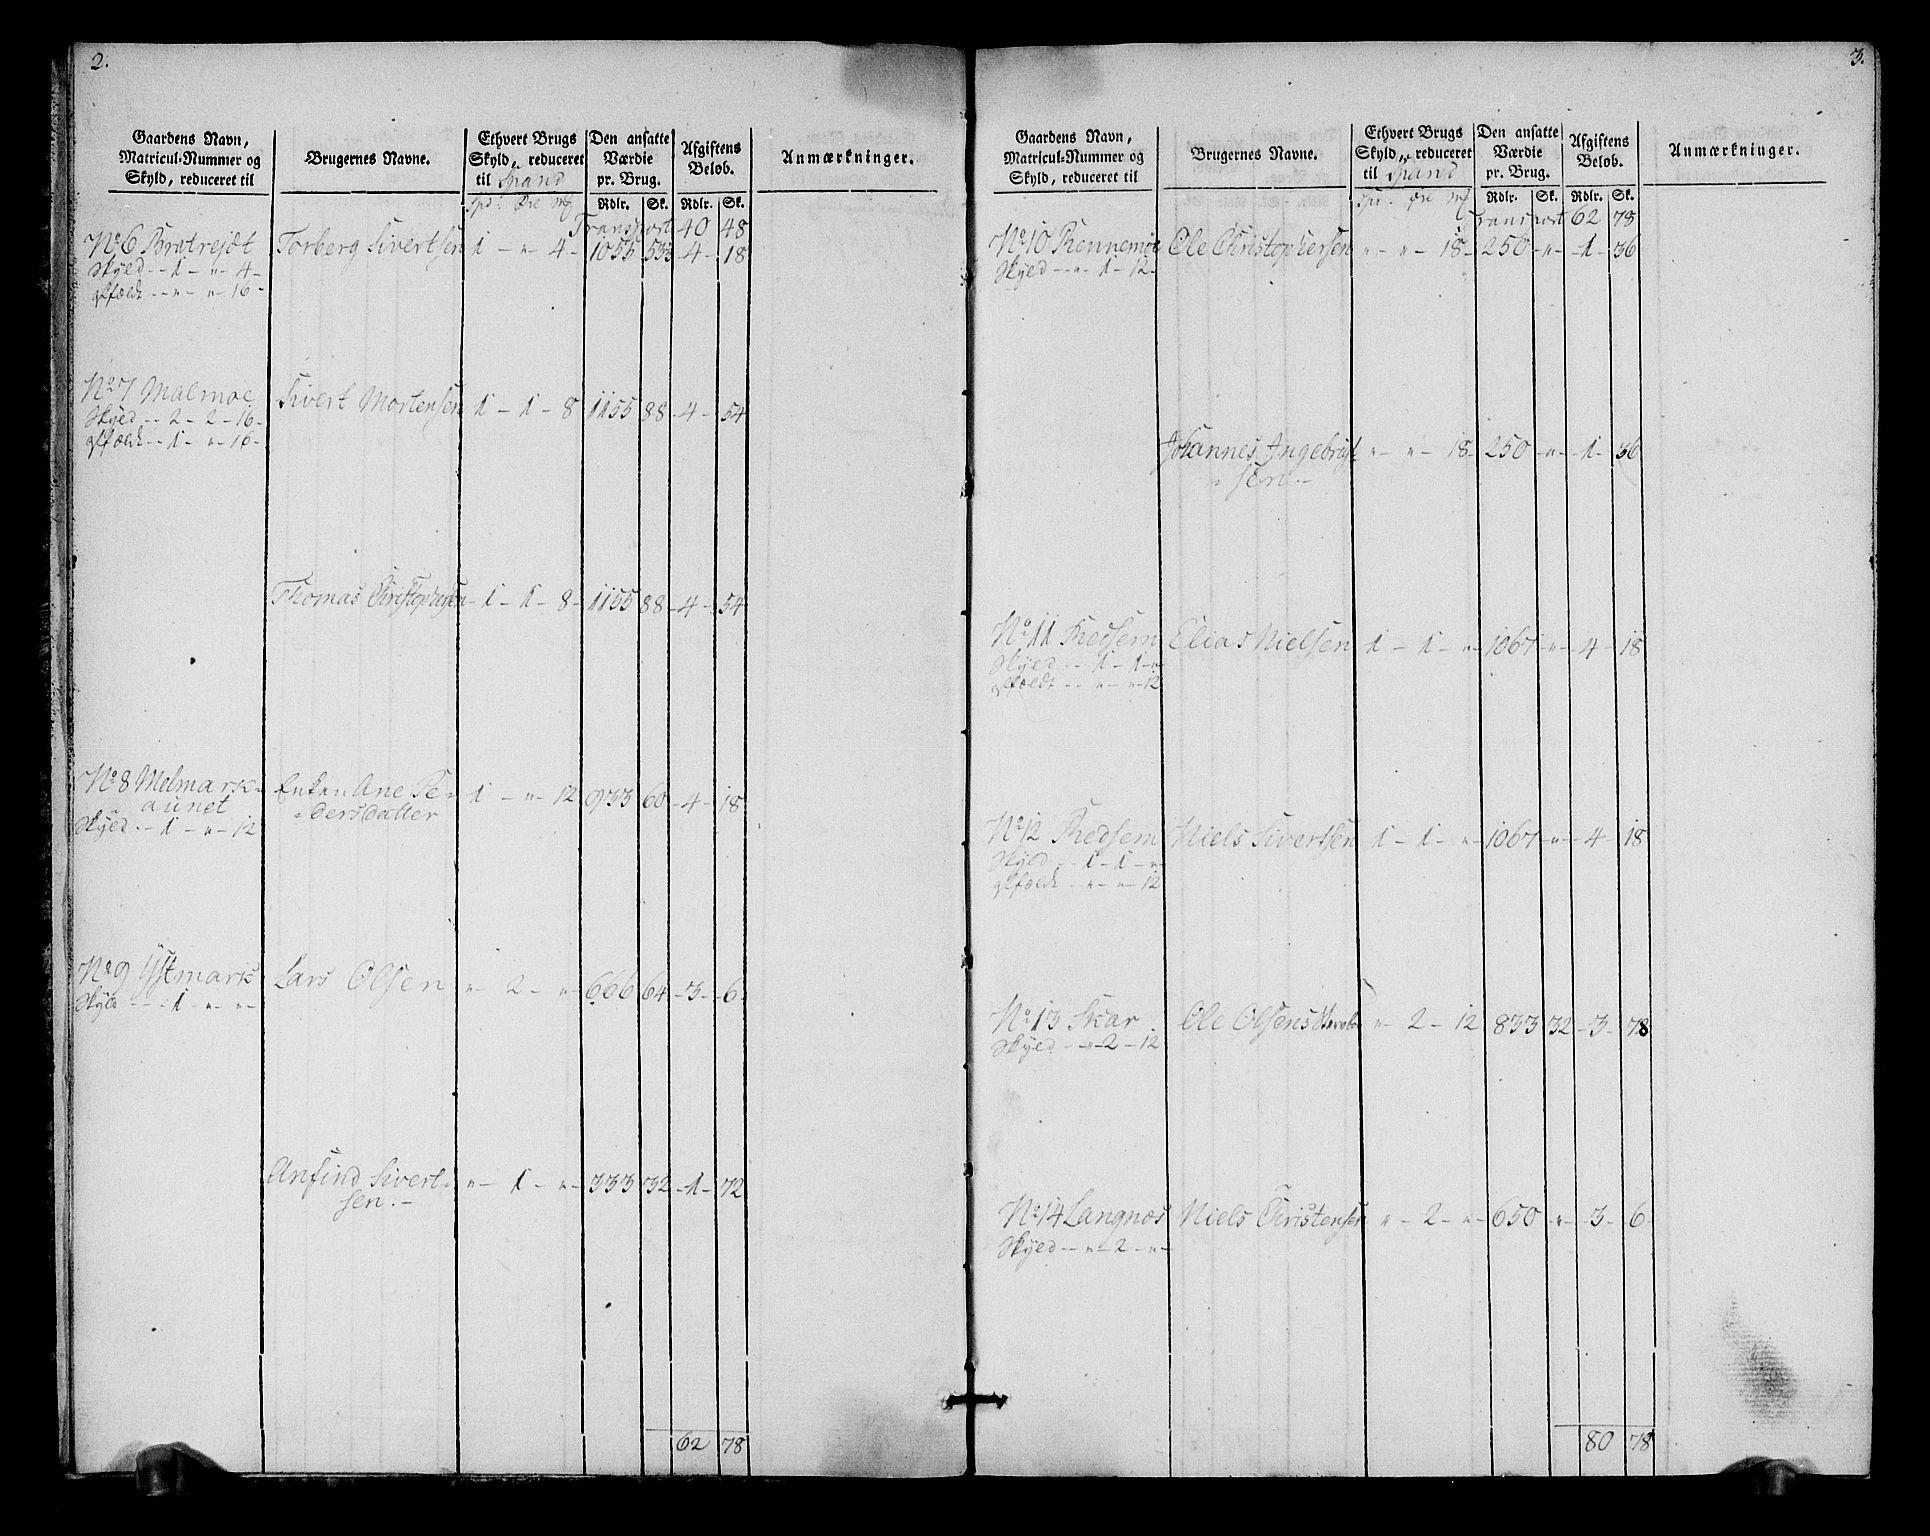 2.
Gaardens Navn, Matricul-Nummer og Skyld, reduceret til
Brugernes Navne.
Ethvert Brugs Skyld, reduceret til Spand
Den ansatte Værdie pr. Brug.
Afgiftens Beløb.
Anmærkninger.
Spd: Øre mk Rdlr. Sk. Rdlr. Sk.
Transport 40 48
No 6 Bratrejdt Torberg Sivertsen 1 - " - 4 - 1055 53½ - 4 - 18
Skyld - - 1 - " - 4 -
- - " - " - 16 -
No 7 Malmoe Sivert Mortensen 1 - 1 - 8 1155 88 - 4 - 54
Skyld - - 2 - 2 - 16 -
- - 1 - " - 16 -
Thomas Christophersen - 1 - 1 - 8 - 1155 88 - 4 - 54
No 8 Melmark- Enken Ane Pe- 1 - " - 12 933 60 - 4 - 18 -
aunet dersdatter
Skyld - - 1 - " - 12
No 9 Ystmark Lars Olsen " - 2 - " - 666 64 - 3 - 6 -
Skyld - - - 1 - " - " -
Anfind Sivert- " - 1 - " - 333 32 - 1 - 72
sen. -
62 78
3.
Gaardens Navn, Matricul-Nummer og Skyld, reduceret til
Brugernes Navne.
Ethvert Brugs Skyld, reduceret til Spand
Den ansatte Værdie pr. Brug.
Afgiftens Beløb.
Anmærkninger.
Spd: Øre mk Rdlr. Sk. Rdlr. Sk.
Transport 62 78
No 10 Rennemoe Ole Christophersen " - " - 18 - 250 - " - - 1 - 36
Skyld - - " - 1 - 12 -
Johannes Ingebrigt " - " - 18 - 250 - " - - 1 - 36
- sen -
No 11 Redsem Elias Nielsen 1 - 1 - " - 1067 - " - 4 - 18
Skyld - - 1 - 1 - " -
- - " - " - 12
No 12 Redsem Niels Sivertsen 1 - 1 - " - 1067 - " - 4 - 18
Skyld - - 1 - 1 - " -
- - " - " - 12
No 13 Skar Ole Olsens " - 2 - 12 833 32 - 3 - 78
Skyld - - " - 2 - 12
No 14 Langnæs Niels Christensen " - 2 - " - 650 " - 3 - 6 -
Skyld - - " - 2 - " -
80 78